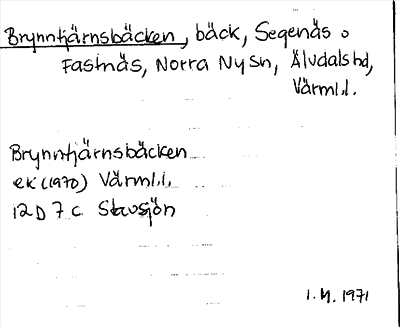 Brynntjärnsbäcken, bäck, Segenäs o
Fastnäs, Norra Ny sn, Älvdals hd,
Värml.l.
Brynntjärnsbäcken
ek (1970) Värml.l,
12D 7 c Stavsjön
I. M. 1971